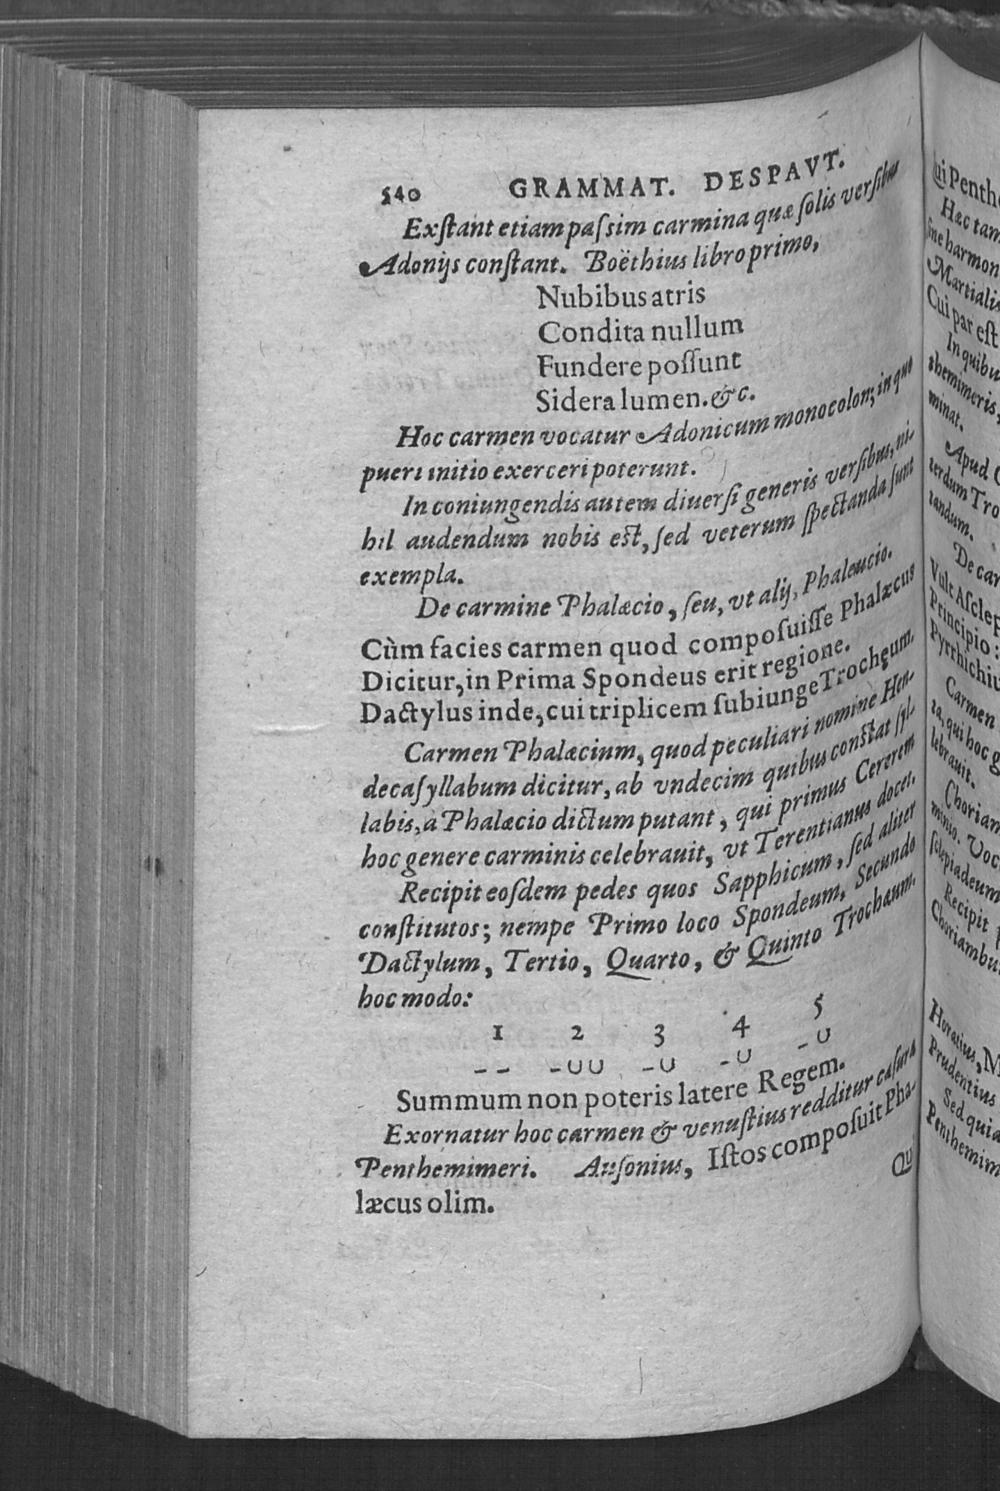 540 GRAMMAT. DESPAVT.
Exſtant etiam paſsim carmina quæ ſolis verſibus
Adonijs conſtant. Boëthius libro primo,
Nubibus atris
Condita nullum
Fundere poſſunt
Sidera lumen. &c.
Hoc carmen vocatur Adonicum monocolon; in quo
pueri initio exerceri poterunt.
In coniungendis autem diuerſi generis verſibus, ni-
hil audendum nobis eſt, ſed veterum ſpectanda ſunt
exempla.
De carmine Phalæcio, ſeu, vt alij, Phaleucio.
Cùm facies carmen quod compoſuiſſe Phalæcus
Dicitur, in Prima Spondeus erit regione.
Dactylus inde, cui triplicem ſubiunge Trochęum.
Carmen Phalæcium, quod peculiari nomine Hen-
decaſyllabum dicitur, ab vndecim quibus conſtat ſyl-
labis, à Phalæcio dictum putant, qui primus Cererem
hoc genere carminis celebrauit, vt Terentianus docet.
Recipit eoſdem pedes quos Sapphicum, ſed aliter
conſtitutos; nempe Primo loco Spondeum, Secundo
Dactylum, Tertio, Quarto, & Quinto Trochæum.
hoc modo:
1 2 3 4 5
– – –∪∪ –∪ –∪ –∪
Summum non poteris latere Regem.
Exornatur hoc carmen & venuſtius redditur cæſura
Penthemimeri. Auſonius, Iſtos compoſuit Pha-
læcus olim.
Qui Penth
Hæc tam
ſine harmon
Martialis
Cui par eſt
In quibu
themimeris,
minat.
Apud C
terdum Tro
tandum.
De car
Vult Aſclep
Principio:
Pyrrhichiu
Carmen
ta, qui hoc g
lebrauit.
Choriam
minio. Voc
ſclepiadeum
Recipit
Choriambu
Horatius, M
Prudentius
Sed quia
Penthemim